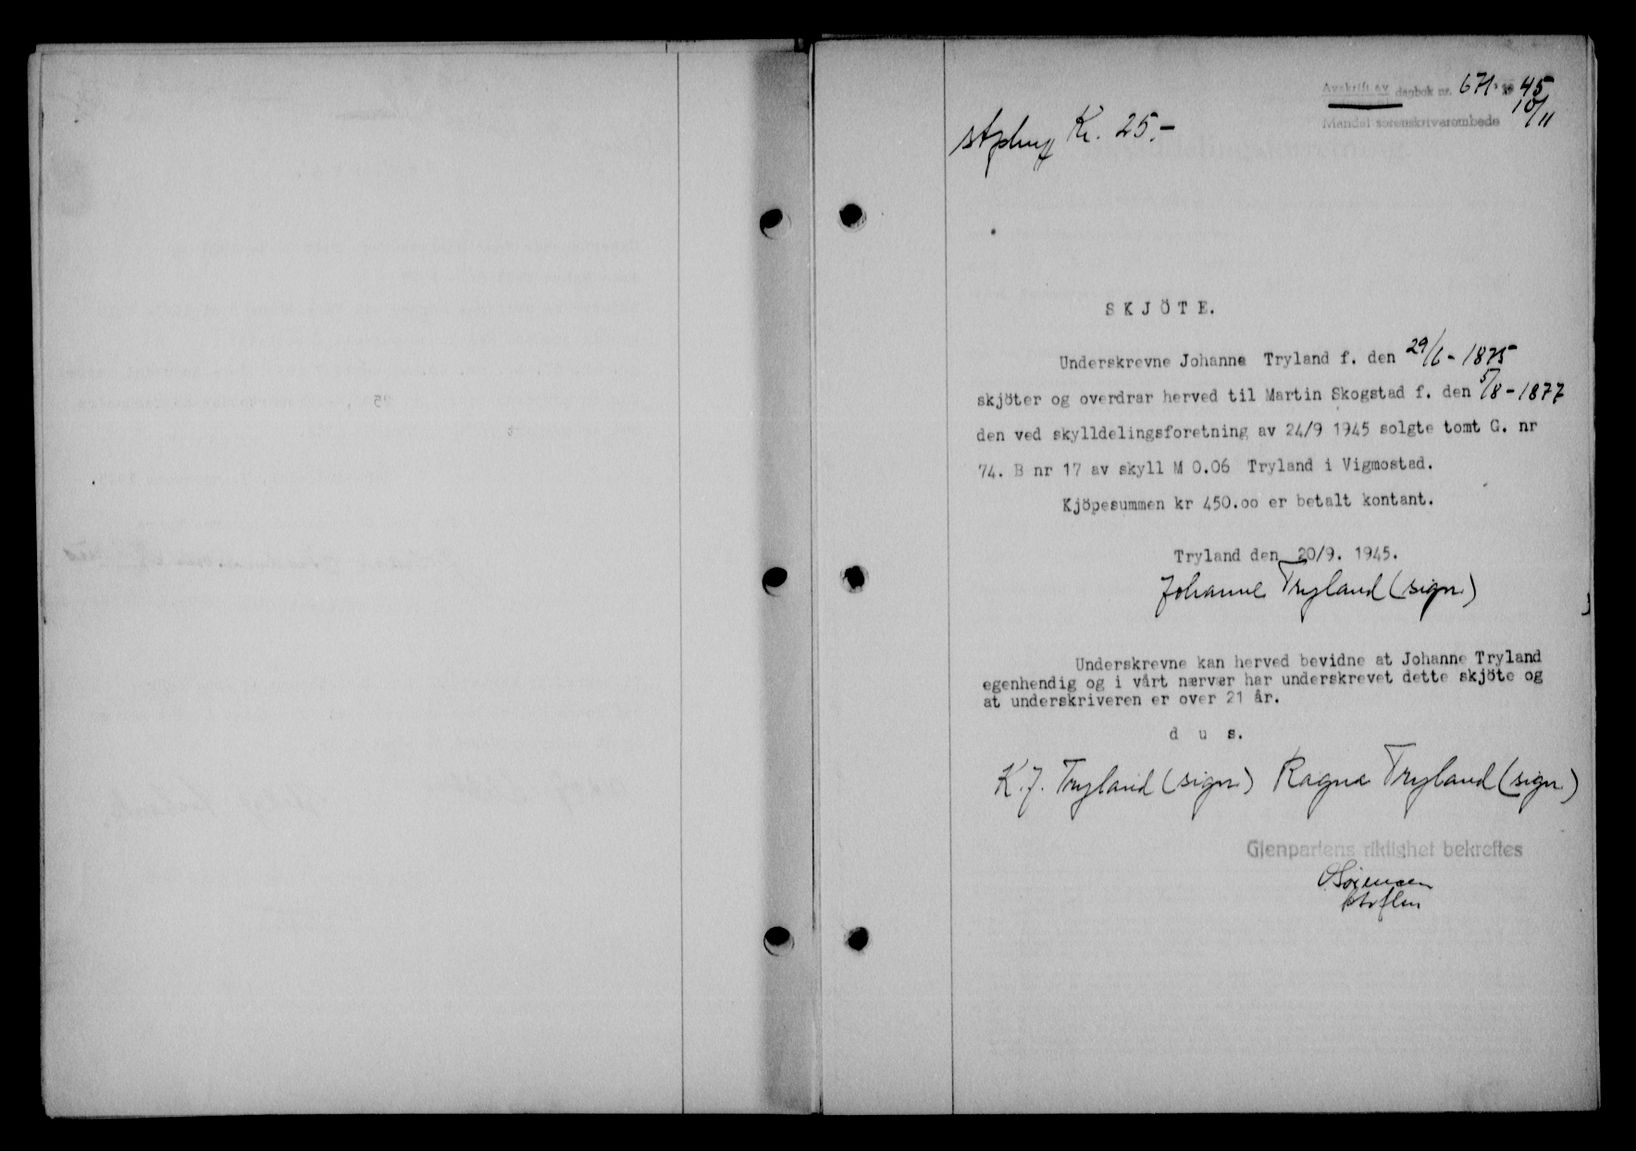 Avskrift av dagbok nr. 671. 19 45
10/11
Mandal sorenskriverembede
Kr. 25.-
SKJÖTE.
Underskrevne Johanne Tryland f. den 29/6 - 1875
skjöter og overdrar herved til Martin Skogstad f. den 5/8 - 1877
den ved skylldelingsforetning av 24/9 1945 solgte tomt G. nr
74. B nr 17 av skyll M 0.06 Tryland i Vigmostad.
Kjöpesummen kr 450.oo er betalt kontant.
Tryland den 20/9. 1945.
Johanne Tryland (sign.)
Underskrevne kan herved bevidne at Johanne Tryland
egenhendig og i vårt nærvær har underskrevet dette skjöte og
at underskriveren er over 21 år.
d u s.
K. J. Tryland (sign.) Ragna Tryland (sign.)
Gjenpartens riktighet bekreftes
O Sörensen